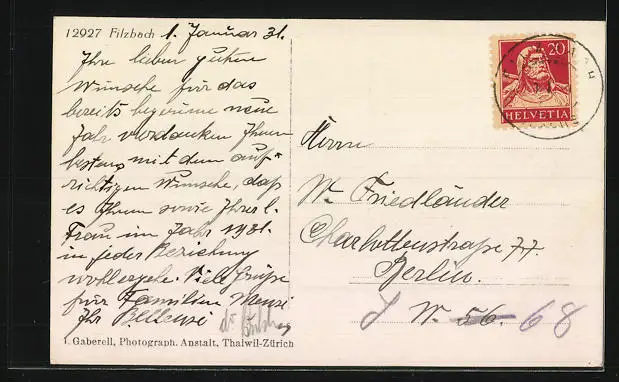 12927 Filzbach 1. Januar 31.
Ihre lieben guten
Wünsche für das
bereits begonnene neue
Jahr verdanken Ihnen
bestens mit dem auf-
richtigen Wunsche, daß
es Ihnen sowie Ihrer l.
Frau im Jahr 1931.
in jeder Beziehung
wohlergehe. Viele Grüße
für Familien
Ihr
I. Gaberell, Photograph. Anstalt, Thalwil-Zürich
20
HELVETIA
Herrn
W. Friedländer
Charlottenstraße 77.
Berlin.
W. 56. 68